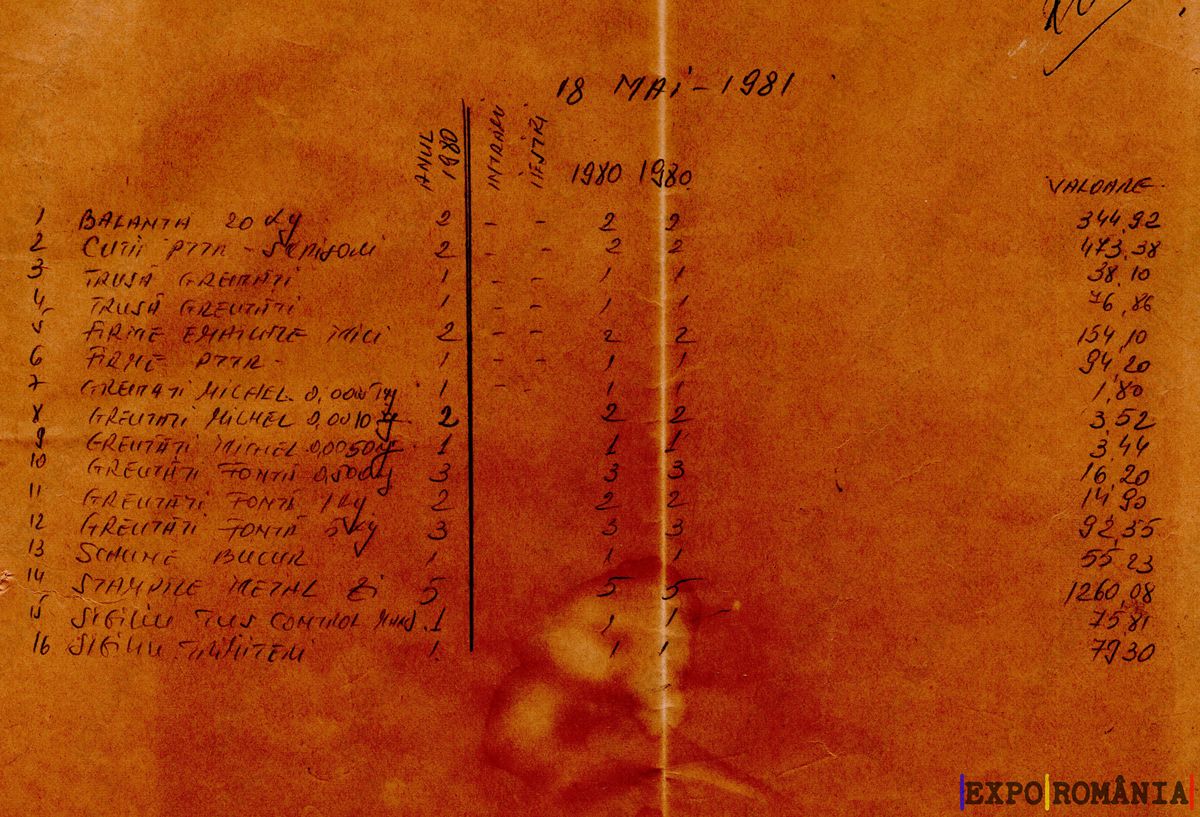 18 MAI - 1981
ANUL 1980 INTRĂRI IEȘIRI 1980 1980 VALOARE
1 BALANTA 20 Kg 2 - - 2 2 344,92
2 CUTII PTTR - SCRISORI 2 - - 2 2 473,38
3 TRUSĂ GREUTĂTI 1 - - 1 1 38,10
4 TRUSĂ GREUTĂTI 1 - - 1 1 76,86
5 FIRME EMAILATE MICI 2 - - 2 2 154,10
6 FIRME PTTR - 1 - - 1 1 94,20
7 GREUTATI NICHEL 1 - - 1 1 1,80
8 GREUTATI NICHEL 0,0010 Kg 2 2 2 3,52
9 GREUTĂTI NICHEL 0,0050 Kg 1 1 1 3,44
10 GREUTĂTI FONTĂ 0,500 Kg 3 3 3 16,20
11 GREUTĂTI FONTĂ 1 Kg 2 2 2 14,90
12 GREUTĂTI FONTĂ 5 Kg 3 3 3 92,55
13 BUCUR 1 1 1 55,23
14 STAMPILE METAL ZI 5 5 5 1260,08
15 SIGILIU TUS CONTROL 1 1 1 75,81
16 SIGILIU TRIMITERI 1 1 1 79,30
EXPO ROMÂNIA